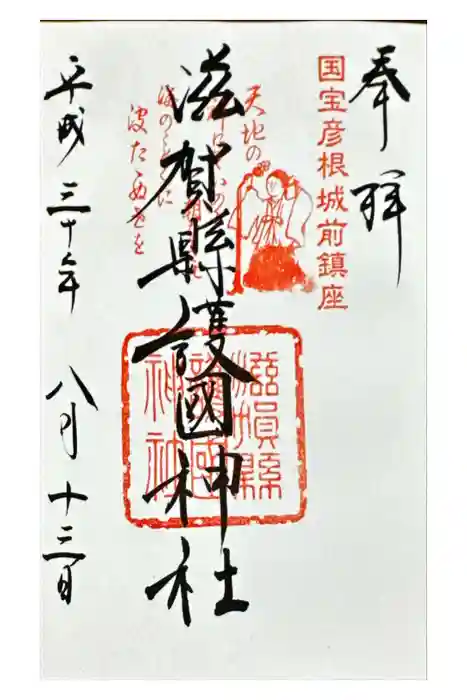 奉拝
国宝彦根城前鎮座
滋賀縣護國神社
天地の
波たゝぬ世を
滋賀縣
護國
神社
平成三十年 八月十三日